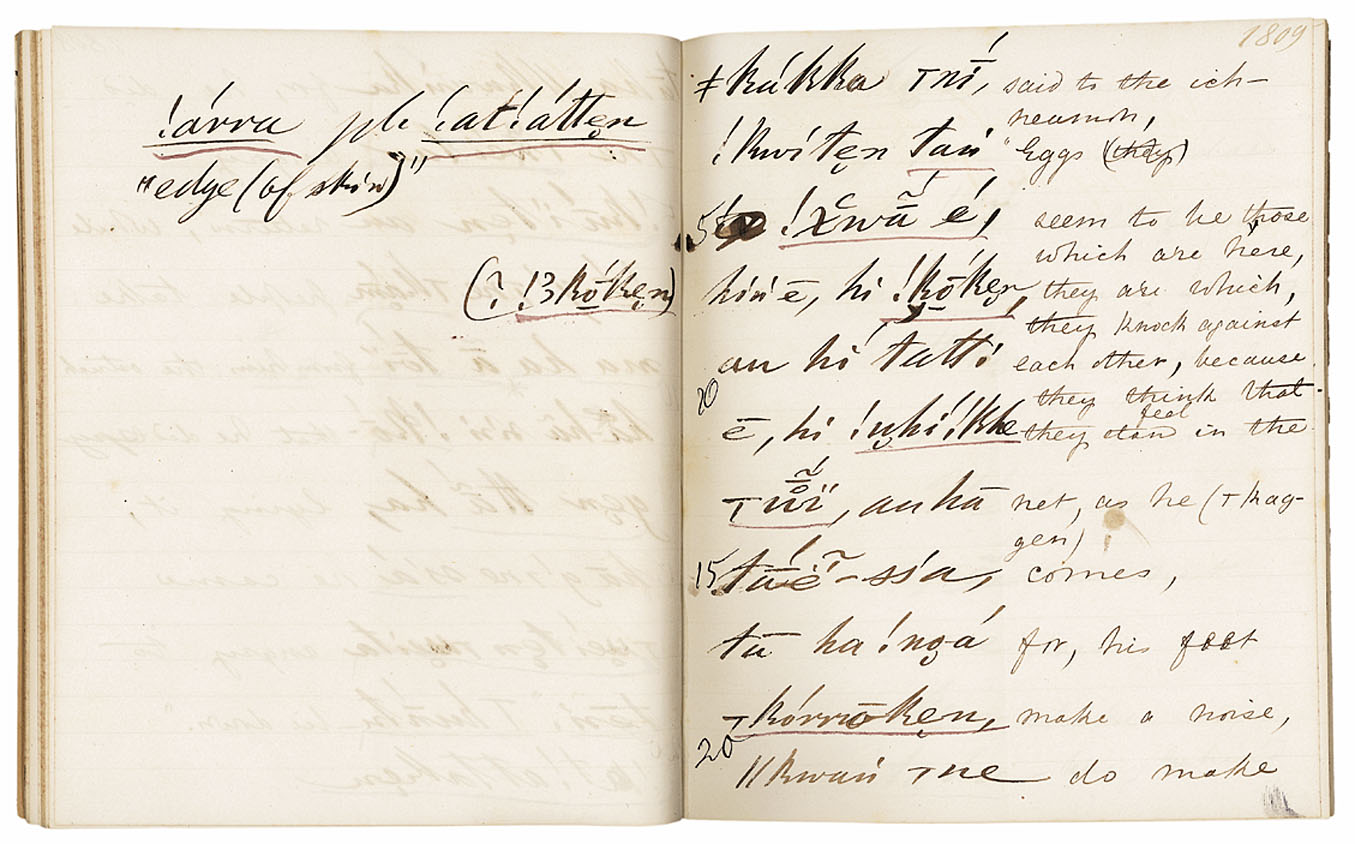 !árra pl. !at!átten
"edge (of skin)"
(? !3kóken)
1809
ǂkákka ꞇní, said to the ich-
neumon,
!kwíten taú "Eggs (they)
5 !x̆wã é, seem to be those
which are here,
hín ē, hi !kōken, they are which,
they knock against
au hí tattí each other, because
20
they think that
ē, hi !uhí !khe they stand feel in the
ꞇnuí, au hā net, as he (ꞇkag-
gen)
15 comes,
tū ha !ngá for, his foot
ꞇkórrōken, make a noise,
20 ǁkwań ꞇne do make